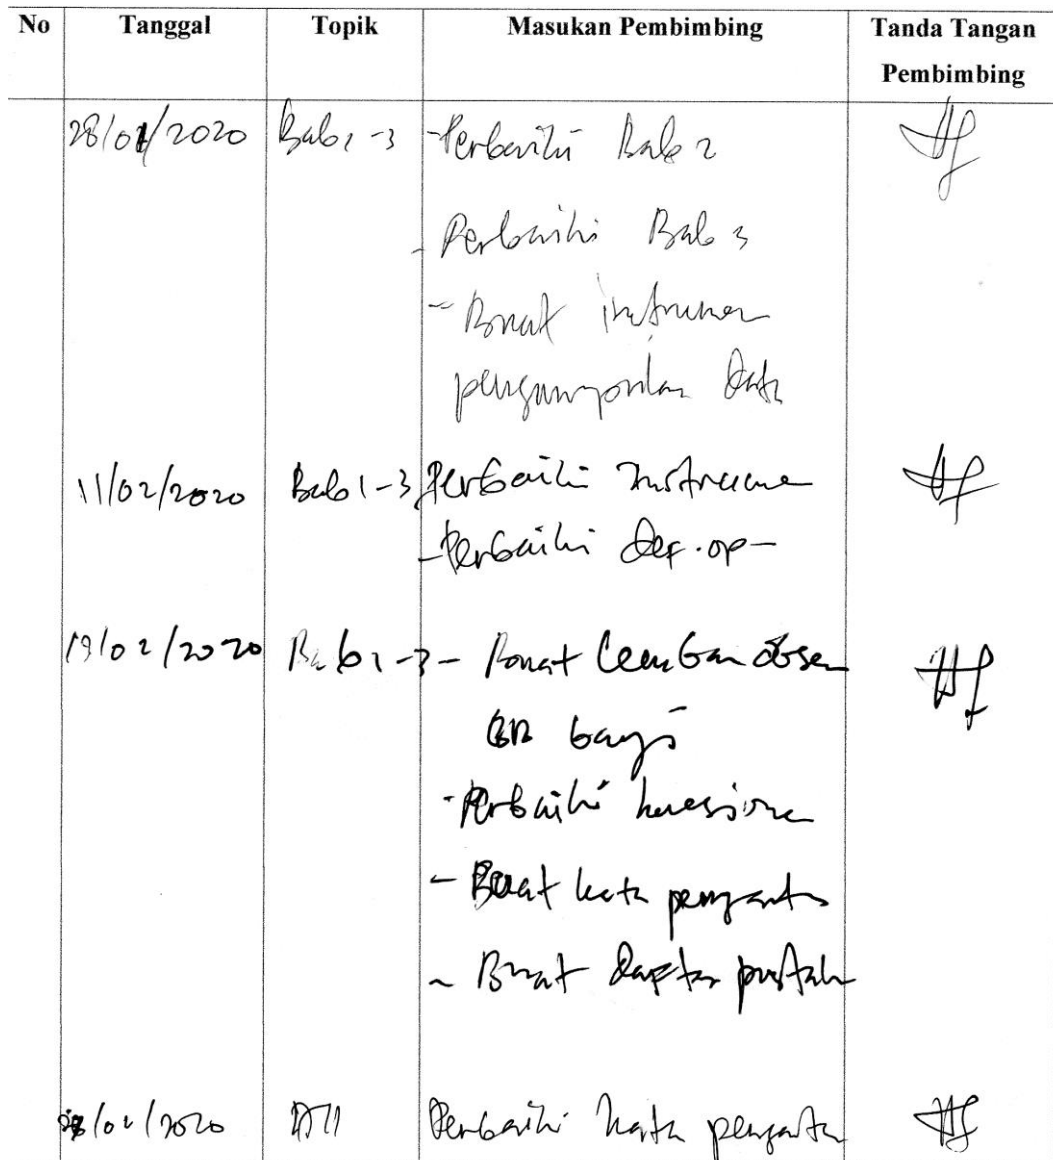 No Tanggal Topik Masukan Pembimbing Tanda Tangan
Pembimbing
28/01/2020 Bab 1-3 -Perbaiki Bab 2
- Perbaiki Bab 3
- Buat instrumen
pengumpulan data
11/02/2020 Bab 1-3 Perbaiki Instrumen
-Perbaiki def.op
19/02/2020 Bab 1-3 - Buat lembar obser
BB bayi
- Perbaiki kuesioner
- Buat kata pengantar
- Buat daftar pustaka
/02/2020 Perbaiki kata pengantar